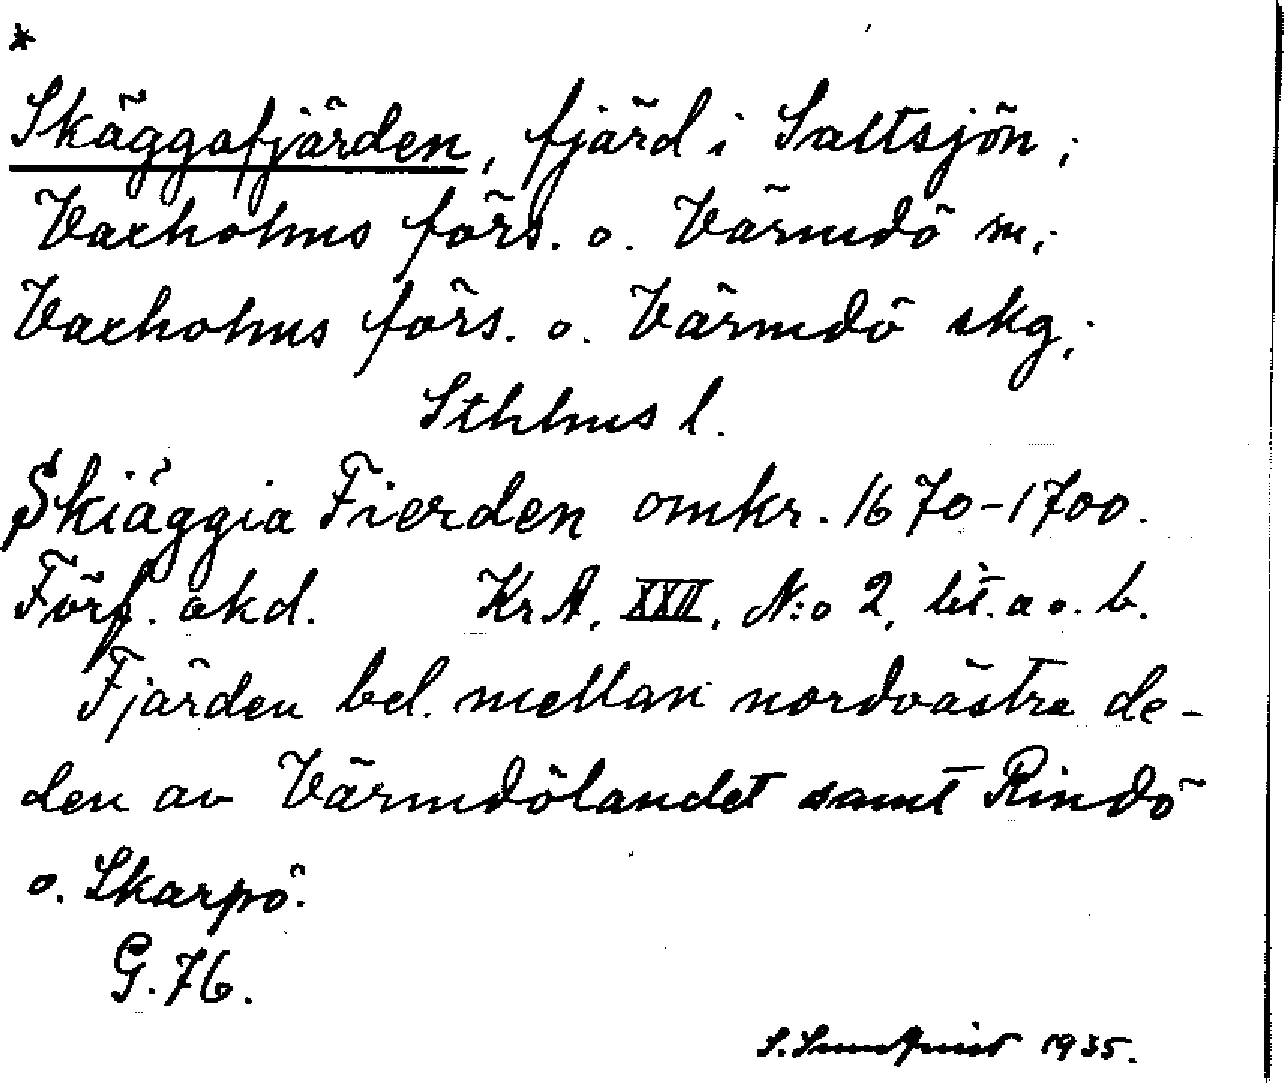 *
Skäggafjärden, fjärd i Saltsjön;
Vaxholms förs. o. Värmdö sn;
Vaxholms förs. o. Värmdö skg;
Sthlms l.
Skiäggia Fierden omkr. 1670-1700.
Förf. okd. KrA, XXII, N:o 2, lit. a o. b.
Fjärden bel. mellan nordvästra de-
len av Värmdölandet samt Rindö
o. Skarpö.
G. 76.
S. Sundqvist 1935.